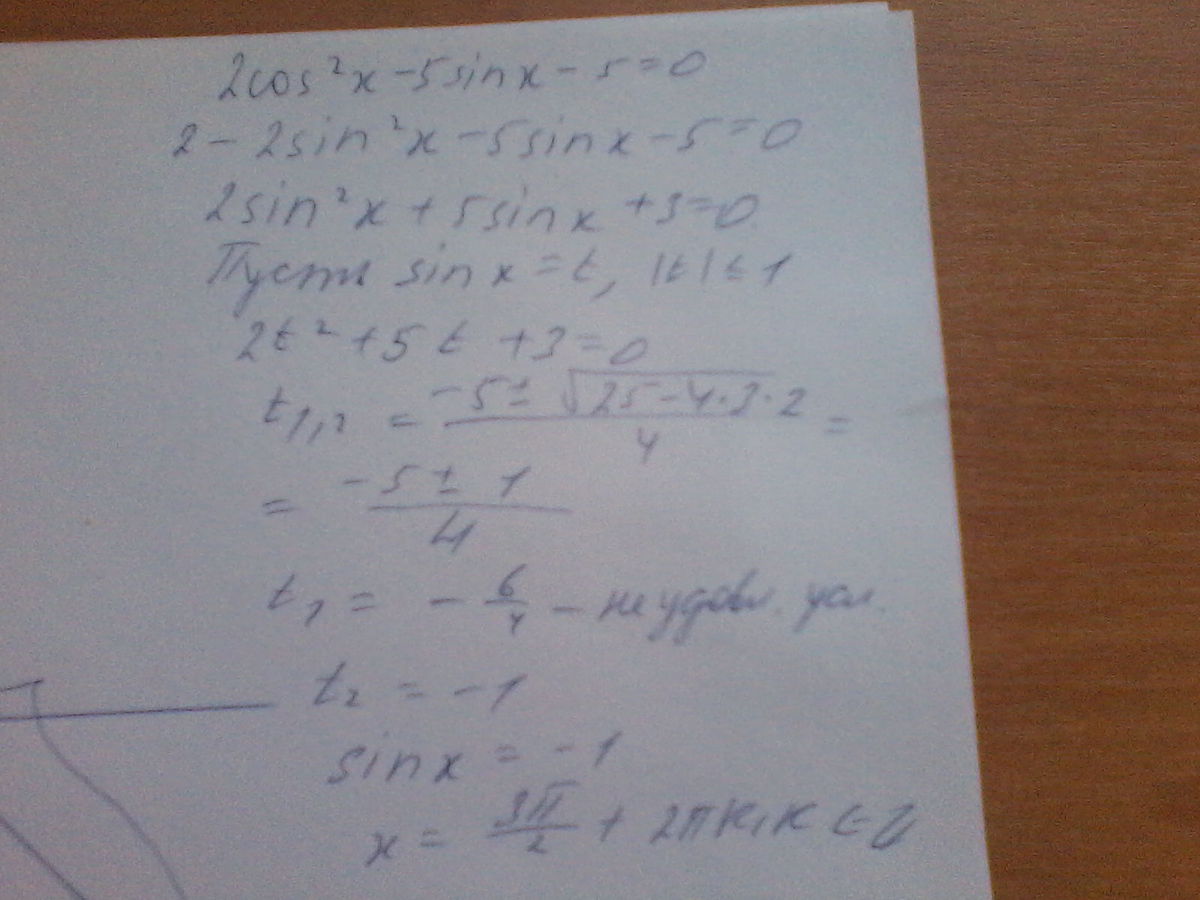 2cos²x - 5sinx - 5 = 0
2 - 2sin²x - 5sinx - 5 = 0
2sin²x + 5sinx + 3 = 0
Пусть sinx = t, |t| ≤ 1
2t² + 5t + 3 = 0
t₁,₂ = (-5 ± √(25 - 4·3·2))/4 =
= (-5 ± 1)/4
t₁ = -6/4 - не удовл. усл.
t₂ = -1
sinx = -1
x = 3π/2 + 2πk, k ∈ Z